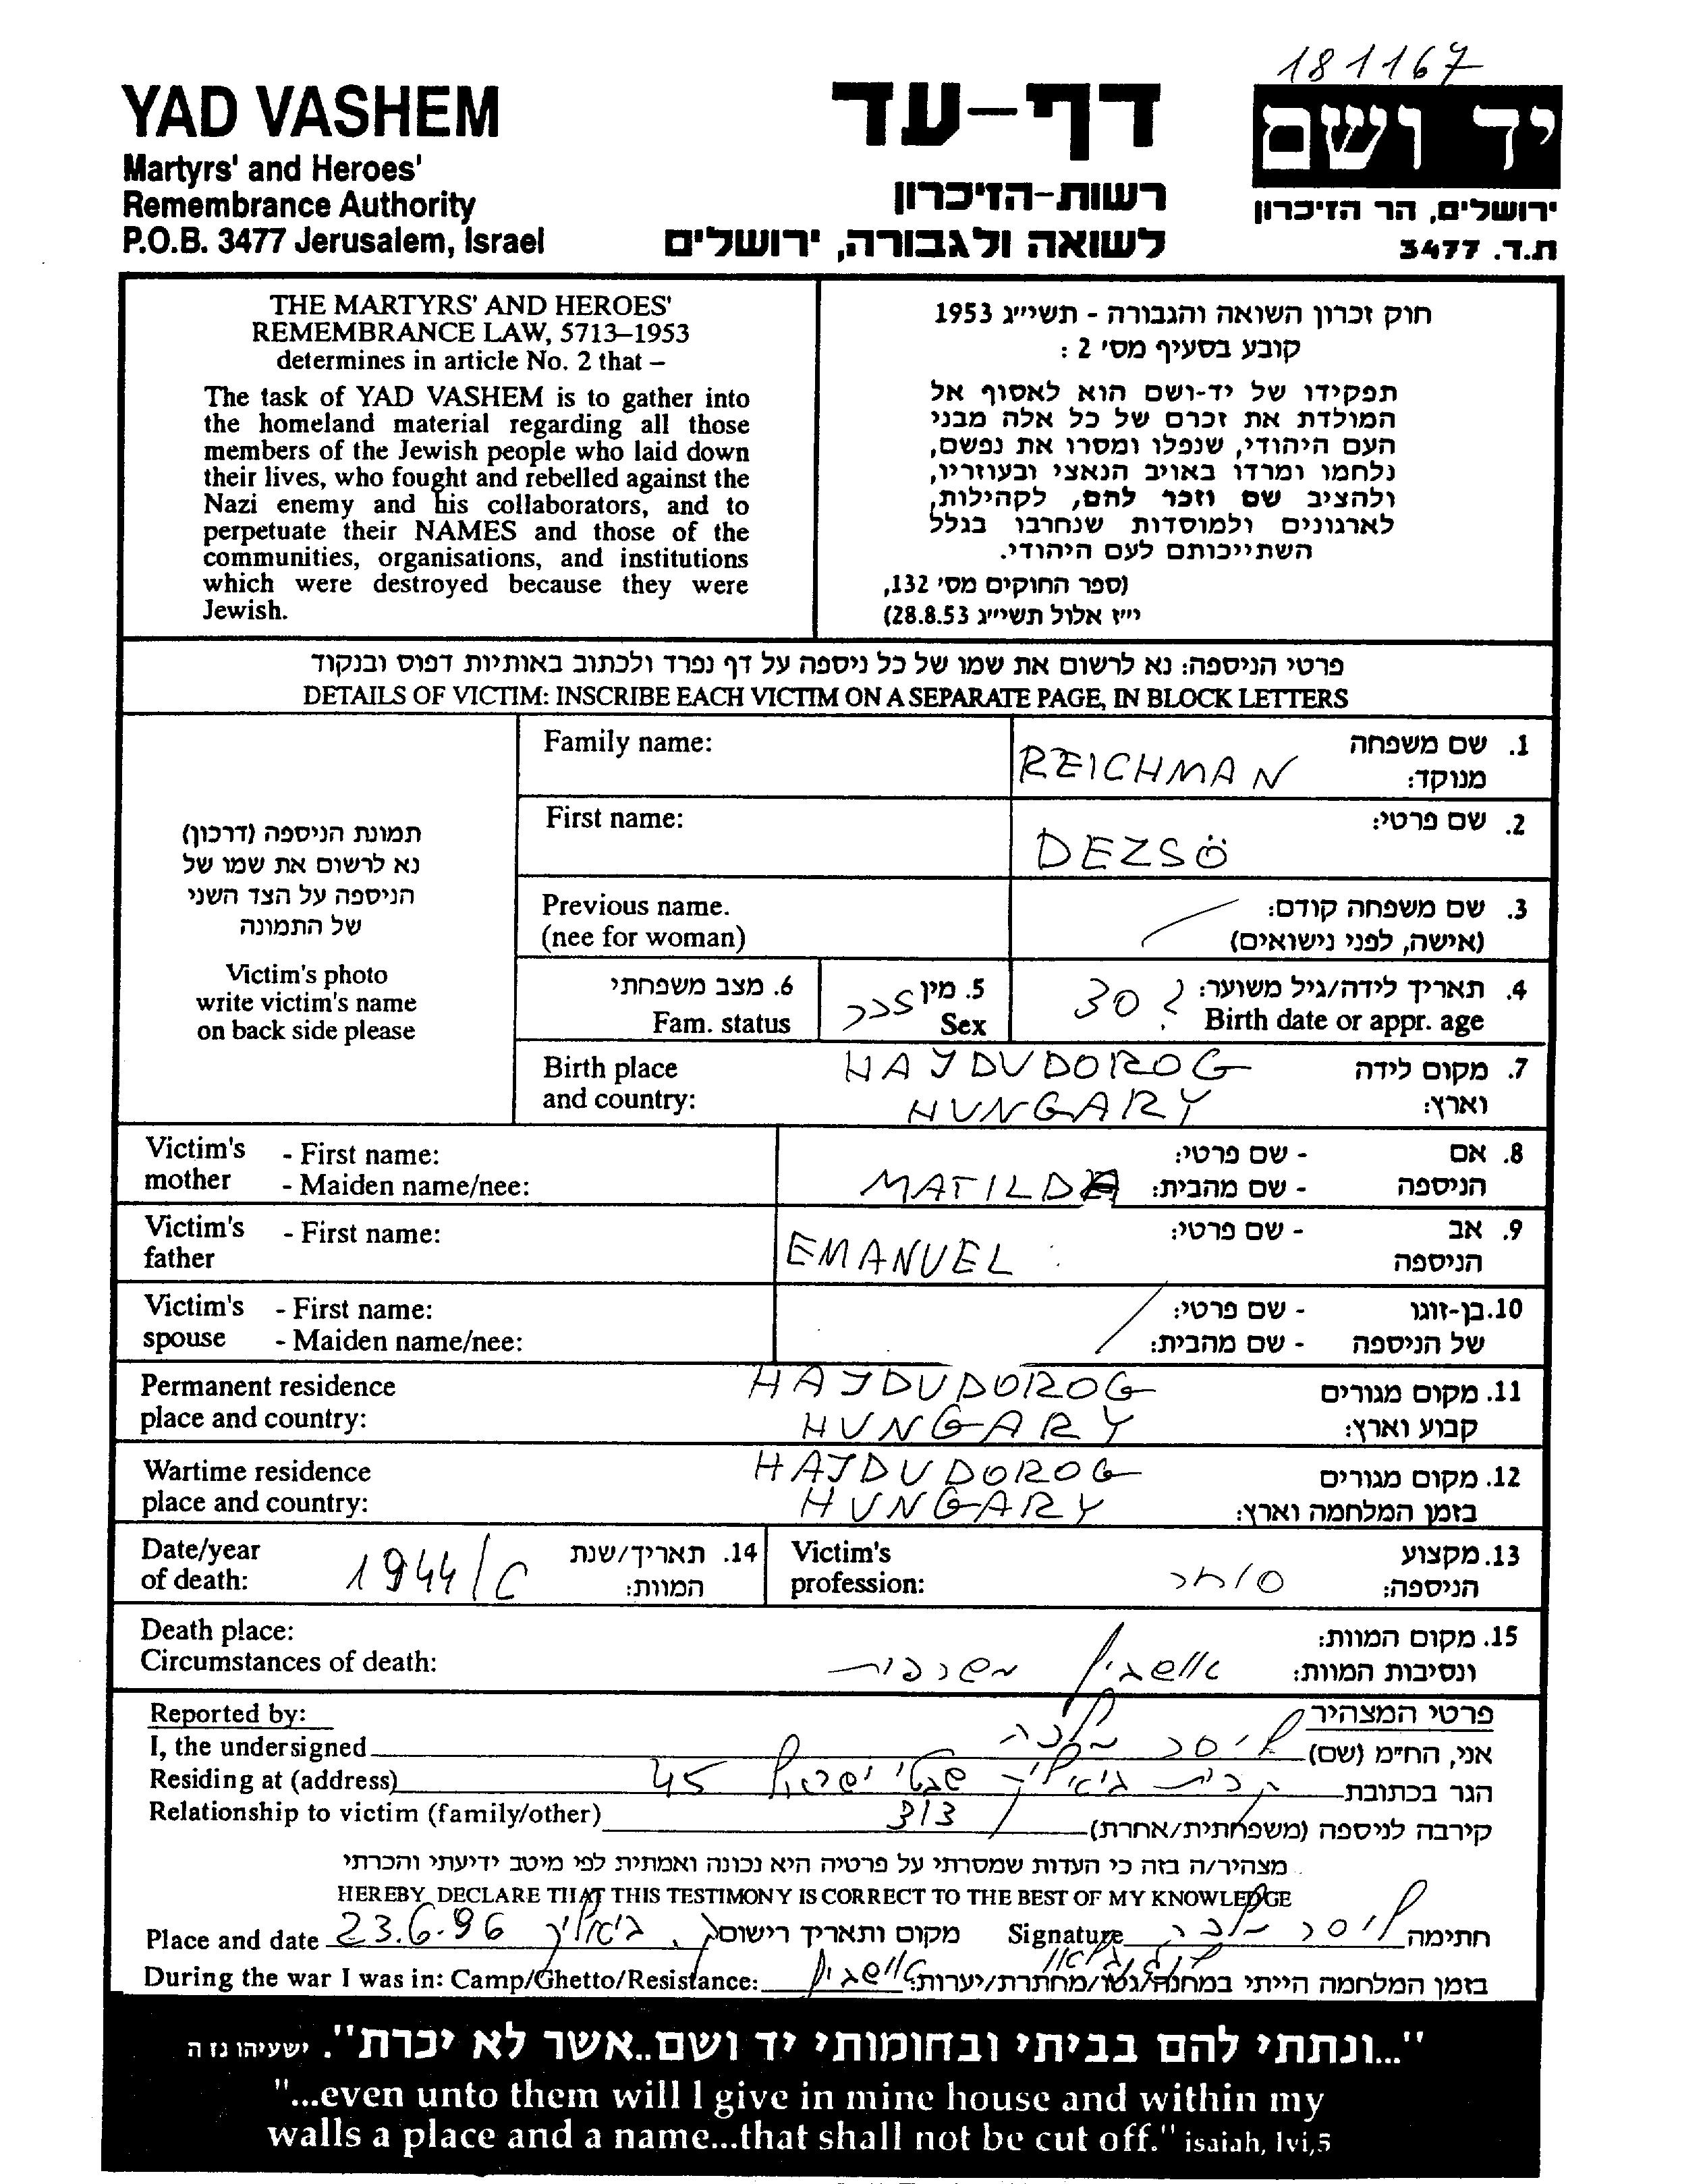 181167
YAD VASHEM
Martyrs' and Heroes'
Remembrance Authority
P.O.B. 3477 Jerusalem, Israel
דף-עד
רשות-הזיכרון
לשואה ולגבורה, ירושלים
יד ושם
ירושלים, הר הזיכרון
ת.ד. 3477
THE MARTYRS' AND HEROES'
REMEMBRANCE LAW, 5713–1953
determines in article No. 2 that –
The task of YAD VASHEM is to gather into
the homeland material regarding all those
members of the Jewish people who laid down
their lives, who fought and rebelled against the
Nazi enemy and his collaborators, and to
perpetuate their NAMES and those of the
communities, organisations, and institutions
which were destroyed because they were
Jewish.
חוק זכרון השואה והגבורה - תשי״ג 1953
קובע בסעיף מס' 2 :
תפקידו של יד-ושם הוא לאסוף אל
המולדת את זכרם של כל אלה מבני
העם היהודי, שנפלו ומסרו את נפשם,
נלחמו ומרדו באויב הנאצי ובעוזריו,
ולהציב שם וזכר להם, לקהילות,
לארגונים ולמוסדות שנחרבו בגלל
השתייכותם לעם היהודי.
(ספר החוקים מס' 132,
י״ז אלול תשי״ג 28.8.53)
פרטי הניספה: נא לרשום את שמו של כל ניספה על דף נפרד ולכתוב באותיות דפוס ובנקוד
DETAILS OF VICTIM: INSCRIBE EACH VICTIM ON A SEPARATE PAGE, IN BLOCK LETTERS
תמונת הניספה (דרכון)
נא לרשום את שמו של
הניספה על הצד השני
של התמונה
Victim's photo
write victim's name
on back side please
Family name: REICHMAN 1. שם משפחה
מנוקד:
First name: DEZSÖ 2. שם פרטי:
Previous name. 3. שם משפחה קודם:
(nee for woman) (אישה, לפני נישואים)
6. מצב משפחתי 5. מין זכר 30 ? 4. תאריך לידה/גיל משוער:
Fam. status Sex Birth date or appr. age
Birth place HAJDUDOROG 7. מקום לידה
and country: HUNGARY וארץ:
Victim's - First name: - שם פרטי: 8. אם
mother - Maiden name/nee: MATILDA - שם מהבית: הניספה
Victim's - First name: EMANUEL - שם פרטי: 9. אב
father הניספה
Victim's - First name: - שם פרטי: 10. בן-זוגו
spouse - Maiden name/nee: - שם מהבית: של הניספה
Permanent residence HAJDUDOROG 11. מקום מגורים
place and country: HUNGARY קבוע וארץ:
Wartime residence HAJDUDOROG 12. מקום מגורים
place and country: HUNGARY בזמן המלחמה וארץ:
Date/year 1944/ 14. תאריך/שנת Victim's 13. מקצוע
of death: המוות: profession: סוחר הניספה:
Death place: 15. מקום המוות:
Circumstances of death: אושביץ משרפות ונסיבות המוות:
Reported by: פרטי המצהיר
I, the undersigned מלכה אני, הח״מ (שם)
Residing at (address) קרית ביאליק שבטי ישראל 45 הגר בכתובת
Relationship to victim (family/other) קירבה לניספה (משפחתית/אחרת)
מצהיר/ה בזה כי העדות שמסרתי על פרטיה היא נכונה ואמתית לפי מיטב ידיעתי והכרתי
HEREBY DECLARE THAT THIS TESTIMONY IS CORRECT TO THE BEST OF MY KNOWLEDGE
Place and date 23.6.96 ק. ביאליק מקום ותאריך רישום Signature חתימה
During the war I was in: Camp/Ghetto/Resistance: אושביץ בזמן המלחמה הייתי במחנה/גטו/מחתרת/יערות:
"...ונתתי להם בביתי ובחומותי יד ושם..אשר לא יכרת". ישעיהו נו ה
"...even unto them will I give in mine house and within my
walls a place and a name...that shall not be cut off." isaiah, lvi,5